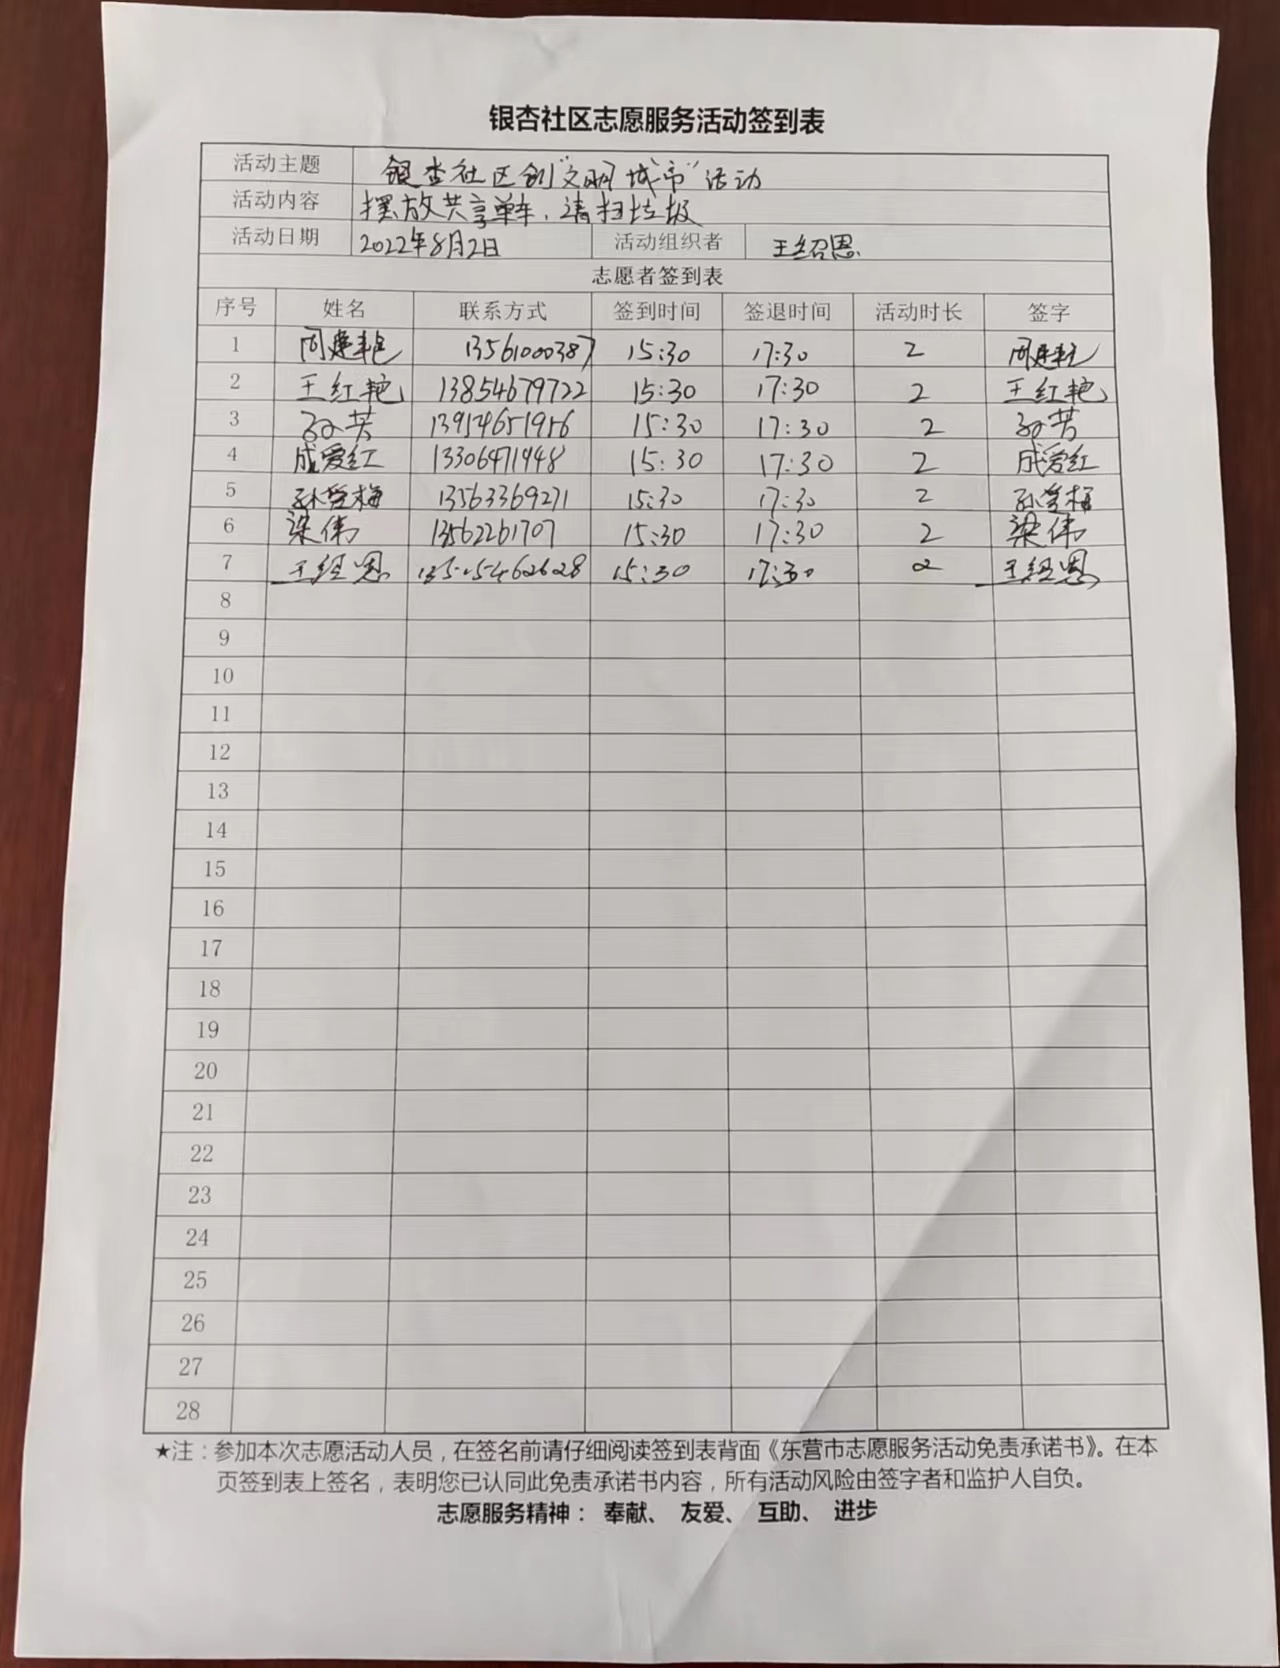 银杏社区志愿服务活动签到表
活动主题 银杏社区创“文明城市”活动
活动内容 摆放共享单车、清扫垃圾
活动日期 2022年8月2日 活动组织者 王绍恩
志愿者签到表
序号 姓名 联系方式 签到时间 签退时间 活动时长 签字
1 13561000387 15:30 17:30 2
2 王红艳 13854679722 15:30 17:30 2 王红艳
3 孙芳 15:30 17:30 2 孙芳
4 成爱红 13306471948 15:30 17:30 2 成爱红
5 13563369271 15:30 17:30 2
6 梁伟 13562261707 15:30 17:30 2 梁伟
7 王绍恩 15:30 17:30 2 王绍恩
8
9
10
11
12
13
14
15
16
17
18
19
20
21
22
23
24
25
26
27
28
★注：参加本次志愿活动人员，在签名前请仔细阅读签到表背面《东营市志愿服务活动免责承诺书》。在本
页签到表上签名，表明您已认同此免责承诺书内容，所有活动风险由签字者和监护人自负。
志愿服务精神： 奉献、 友爱、 互助、 进步